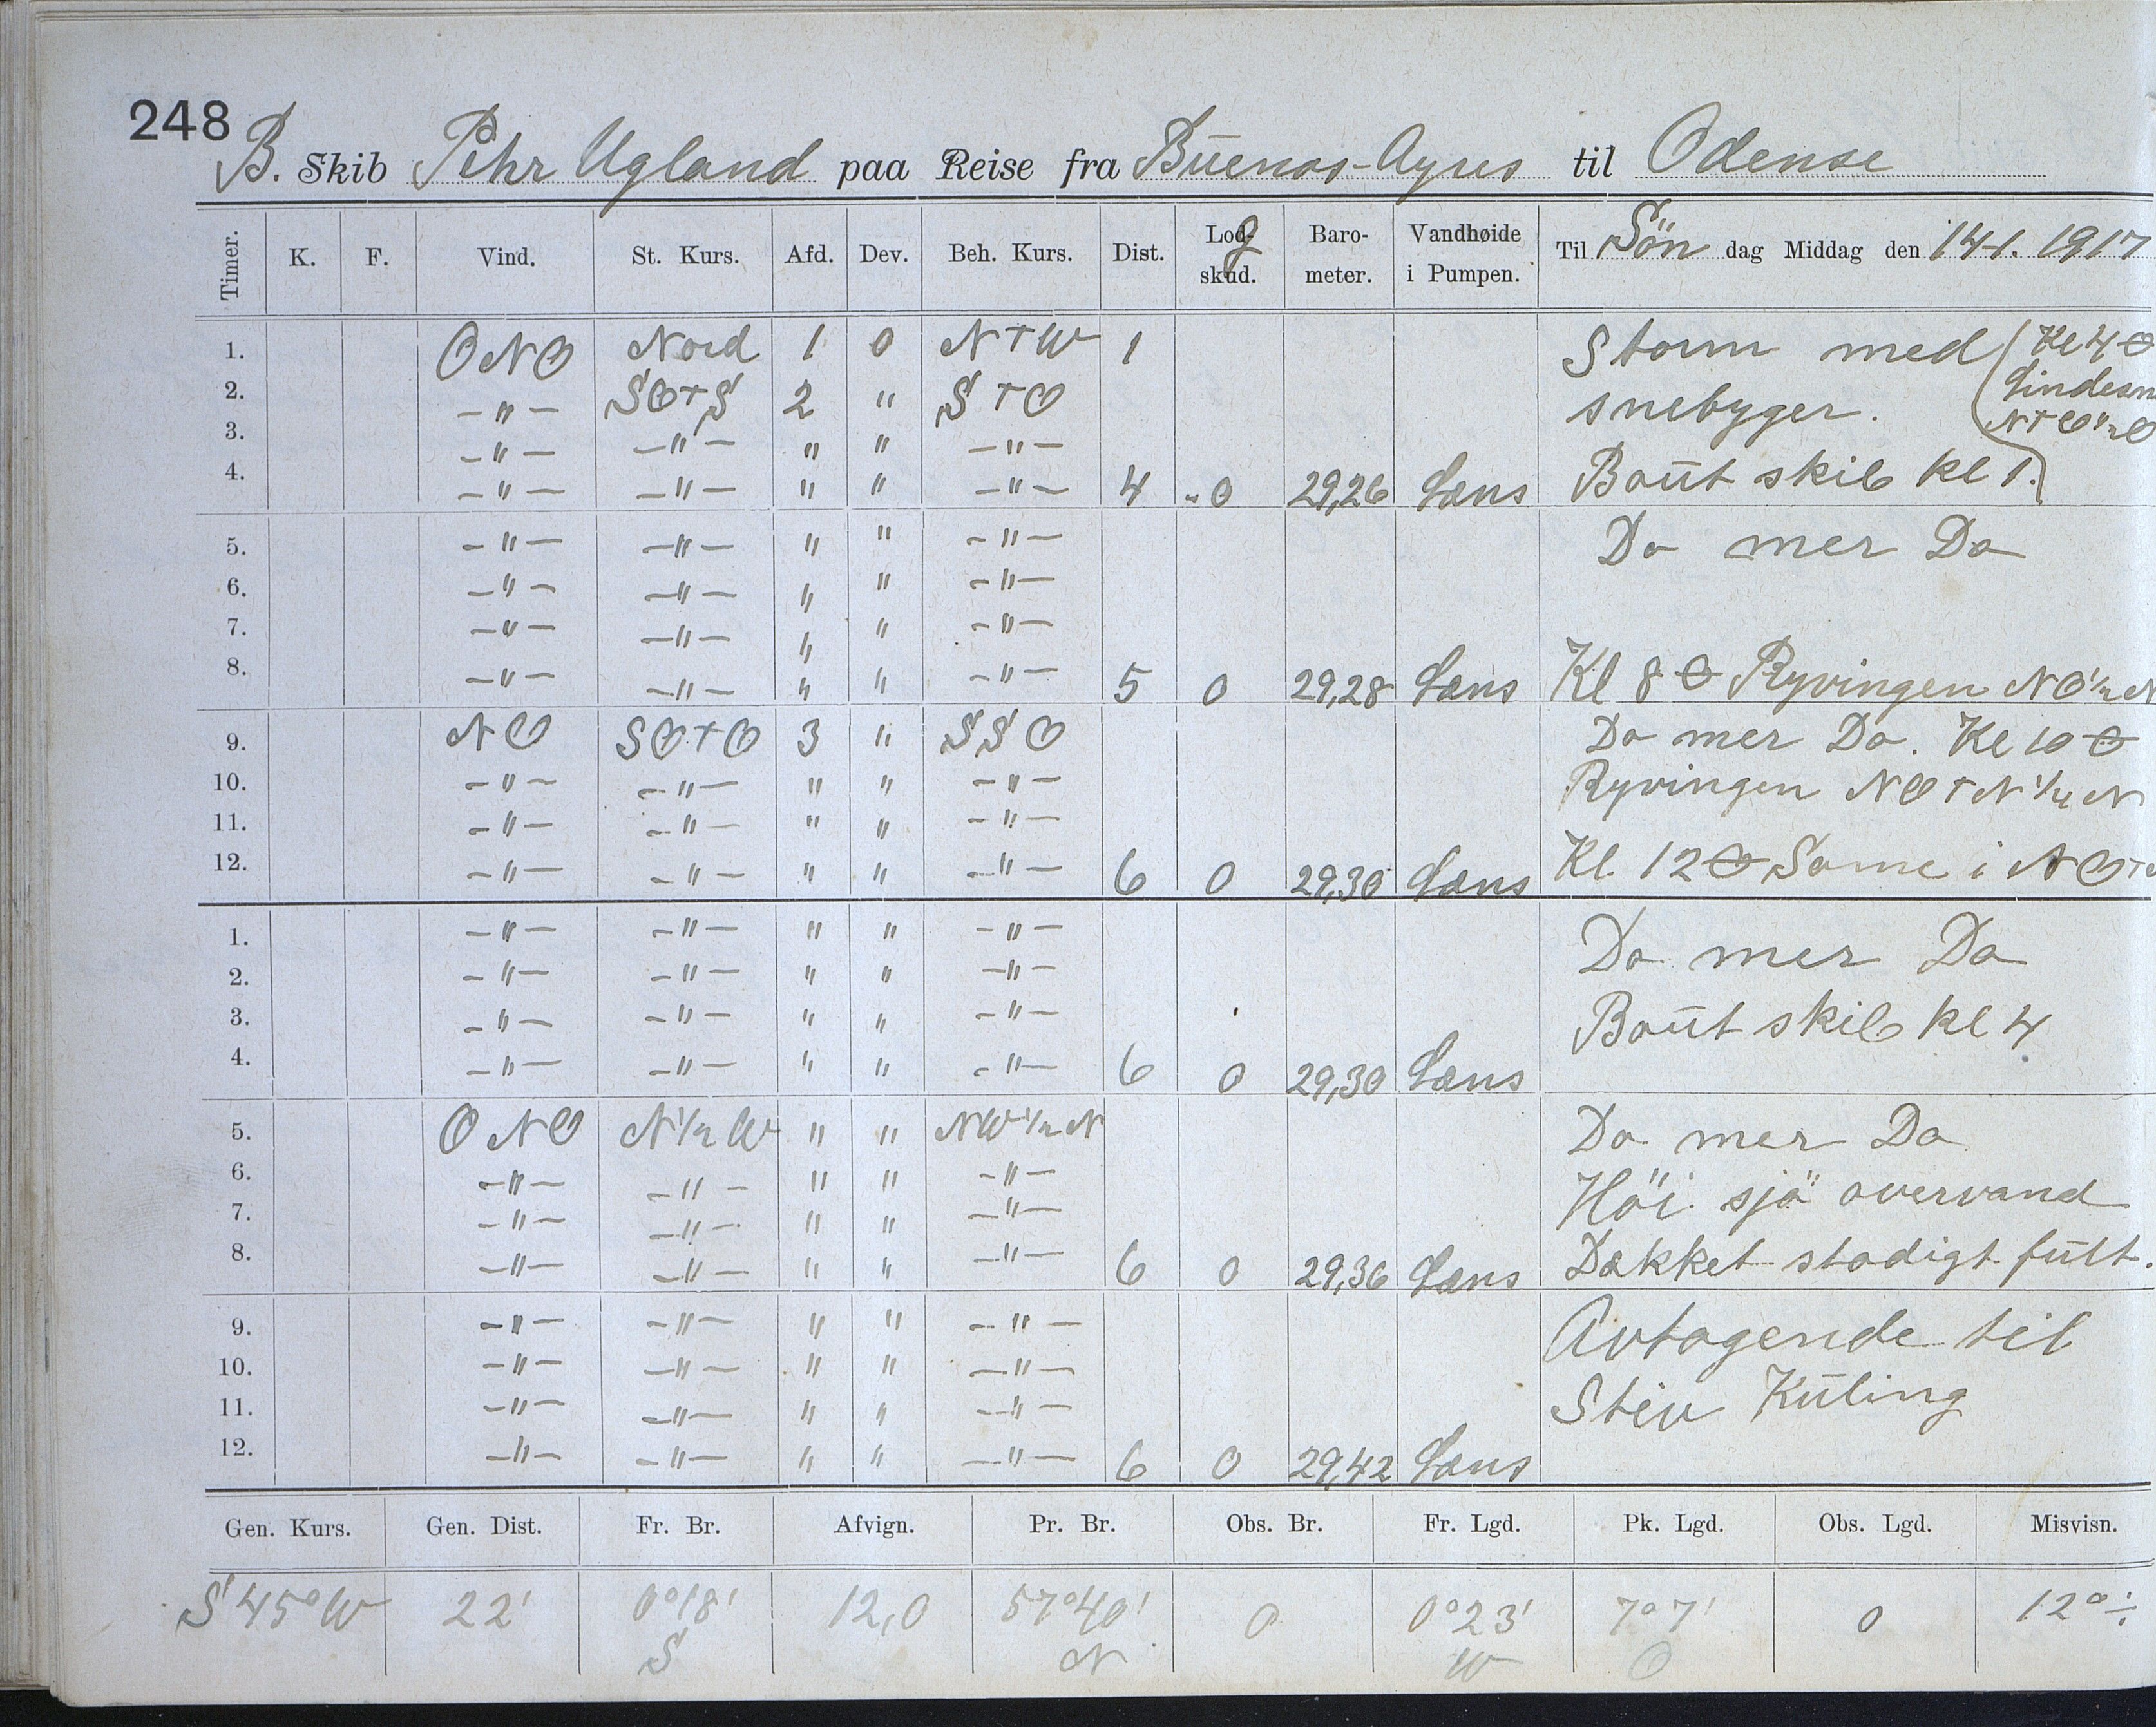 248
B. Skib Pehr Ugland paa Reise fra Buenos-Ayres til Odense
Timer. K. F. Vind. St. Kurs. Afd. Dev. Beh. Kurs. Dist. Log-skud. Baro-meter. Vandhøide i Pumpen. Til Søn dag Middag den 14-1. 1917
1. ONO Nord 1 0 N+W 1 Storm med (Kl 4 O
2. -"- SO+S 2 " S+O snebyger. Lindesn
3. -"- -"- " " -"- N+O½O
4. -"- -"- " " -"- 4 "0 29,26 Læns Baut skib kl 1.)
5. -"- -"- " " -"- Do mer Do
6. -"- -"- " " -"-
7. -"- -"- " " -"-
8. -"- -"- " " -"- 5 0 29,28 Læns Kl 8 O Ryvingen NO½N
9. NO SO+O 3 " SSO Do mer Do. Kl 10 O
10. -"- -"- " " -"- Ryvingen NO+N¼N
11. -"- -"- " " -"-
12. -"- -"- " " -"- 6 0 29,30 Læns Kl. 12 O Same i NO+
1. -"- -"- " " -"- Do mer Do
2. -"- -"- " " -"-
3. -"- -"- " " -"- Baut skib kl 4
4. -"- -"- " " -"- 6 0 29,30 Læns
5. ONO N½W " " NW½N Do mer Do
6. -"- -"- " " -"- Höi sjö overvand
7. -"- -"- " " -"-
8. -"- -"- " " -"- 6 0 29,36 Læns Dækket stadigt fult.
9. -"- -"- " " -"- Avtagende til
10. -"- -"- " " -"-
11. -"- -"- " " -"- Stiv Kuling
12. -"- -"- " " -"- 6 0 29,42 Læns
Gen. Kurs. Gen. Dist. Fr. Br. Afvign. Pr. Br. Obs. Br. Fr. Lgd. Pk. Lgd. Obs. Lgd. Misvisn.
S 45° W 22' 0°18' 12,0 57°40' 0 0°23' 7°7' 0 12° ÷
S N W O